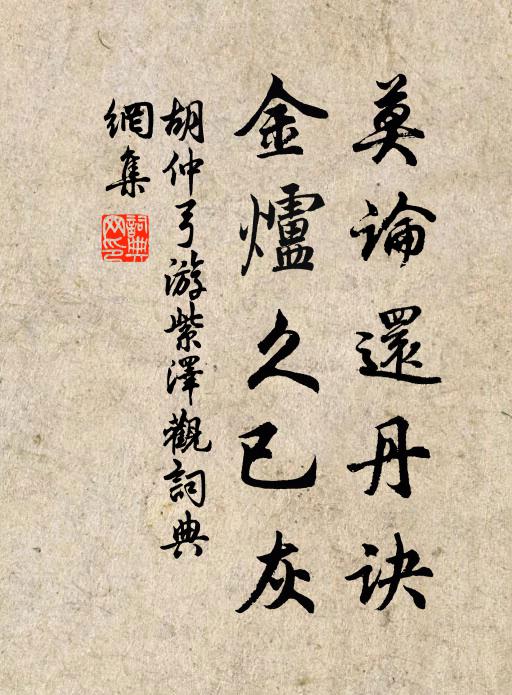 莫論還丹訣
金爐久已灰
胡仲弓游紫澤觀詞典
網集
詞典網印